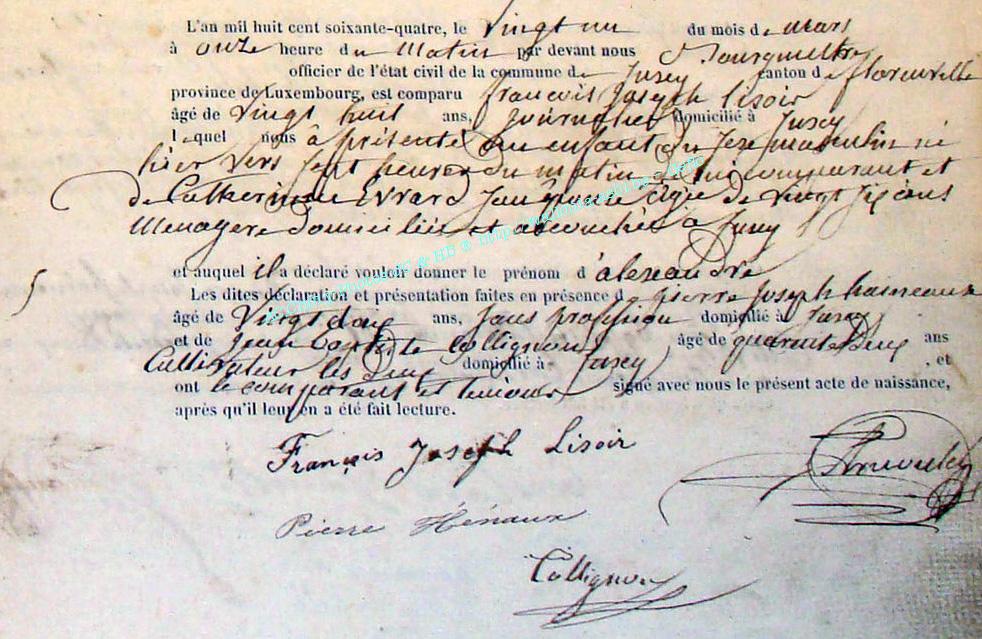 L'an mil huit cent soixante-quatre, le vingt un du mois de Mars
à onze heure du Matin par devant nous
officier de l'état civil de la commune de Jusey canton de florenville
province de Luxembourg, est comparu françois Joseph Lisoir
âgé de vingt huit ans, Journalier domicilié à Jusey
lequel nous à présenté un enfant du sexe masculin né
hier vers sept heures du matin de lui comparant et
de Catherine Evrard Son épouse agée de vingt six ans
Menagere domiciliée et accouchée à Jusey
et auquel il a déclaré vouloir donner le prénom d'alexandre
Les dites déclaration et présentation faites en présence de pierre Joseph hainaux
âgé de Vingt deux ans, Sans profession domicilié à Jusey
et de Jean Baptiste Collignon âgé de quarante deux ans
Cultivateur les deux domicilié à Jusey, et
ont le comparant et temoins signé avec nous le présent acte de naissance,
après qu'il leur en a été fait lecture.
François Joseph Lisoir
Pierre Hénaux
Collignon